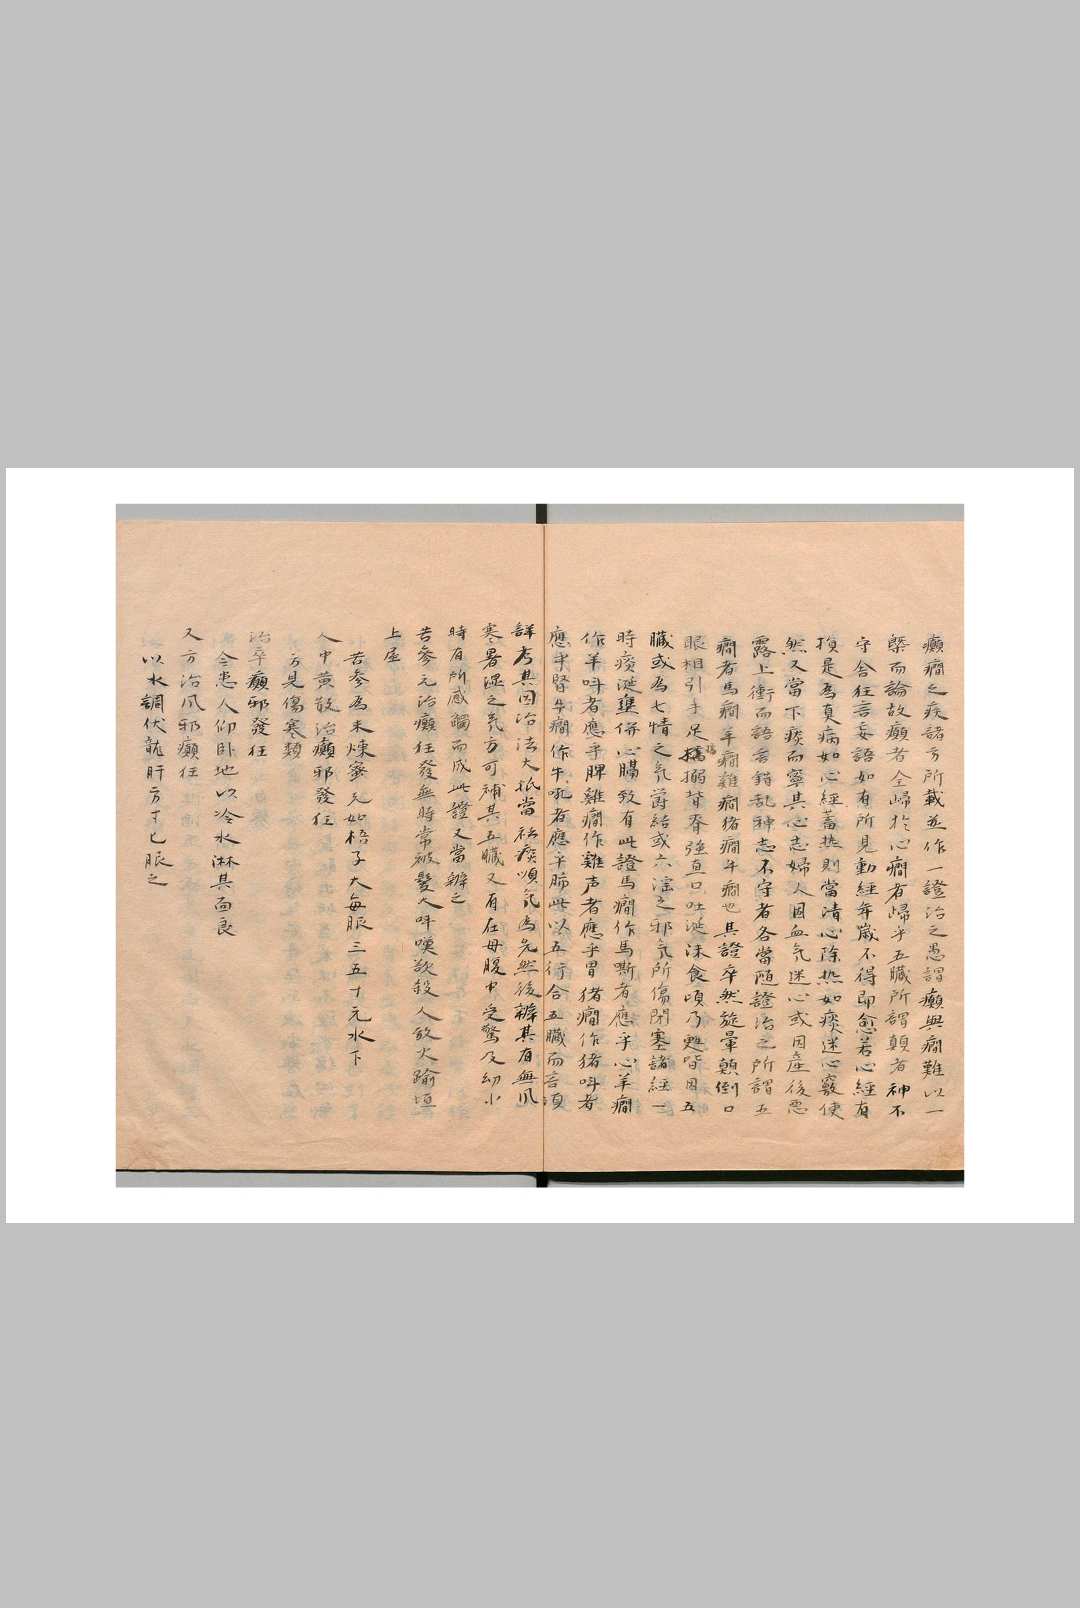 癲癇之疾諸方所載並作一證治之愚謂癲與癇難以一
槩而論故癲者全歸於心癇者歸乎五臟所謂顛者神不
守舍狂言妄語如有所見動經年歲不得即愈若心經有
損是為真病如心經蓄热則當清心除热如痰迷心竅使
然又當下痰而寧其心志婦人因血気迷心或因産後悪
露上衝而語言錯乱神志不守者各當随證治之所謂五
癇者馬癇羊癇雞癇猪癇牛癇也其證卒然旋暈顛倒口
眼相引手足搐搦背脊強直口吐涎沫食頃乃甦皆因五
臟或為七情之気欝結或六淫之邪気所傷閉塞諸経一
時痰涎壅併心腸致有此證馬癇作馬嘶者應乎心羊癇
作羊呌者應乎脾雞癇作雞声者應乎胃猪癇作猪呌者
應乎腎牛癇作牛吼者應乎肺此以五行合五臟而言須
詳考其因治法大抵當祛痰順気為先然後辨其有無风
寒暑湿之気方可補其五臟又有在母腹中受驚及幼小
時有所感觸而成此證又當辨之
苦參元治癲狂發無時常被髮大呌嘆欲殺人放火踰垣
上屋
苦參為末煉蜜元如梧子大每服三五十元水下
人中黄散治癲邪發狂
方見傷寒類
治卒癲邪發狂
令患人仰卧地以冷水淋其面良
又方治风邪癲狂
以水調伏龍肝方寸匕服之